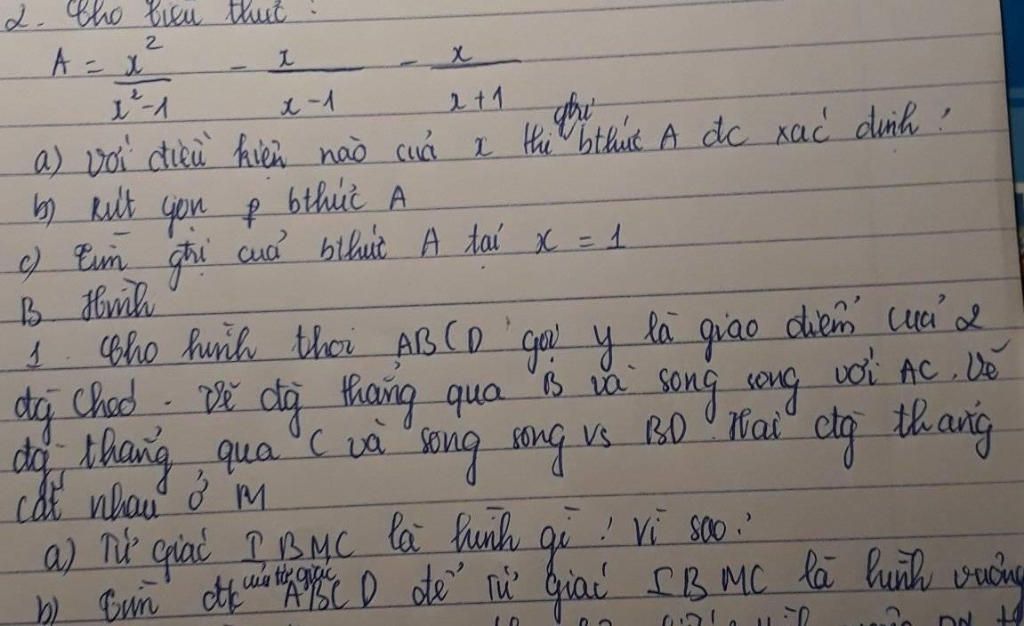 2. Cho biểu thức:
A = x²/(x²-1) - x/(x-1) - x/(x+1)
a) Với điều kiện nào của x thì gtrị bthức A đc xác định?
b) Rút gọn bthức A
c) Tìm gtrị của bthức A tại x = 1
B Hình
1. Cho hình thoi ABCD gọi y là giao điểm của 2
đg chéo. Vẽ đg thẳng qua B và song song với AC. Vẽ
đg thẳng qua C và song song vs BD. Hai đg thẳng
cắt nhau ở M
a) Tứ giác IBMC là hình gì? Vì sao?
b) Tìm đk của tứ giác ABCD để Tứ giác IBMC là hình vuông